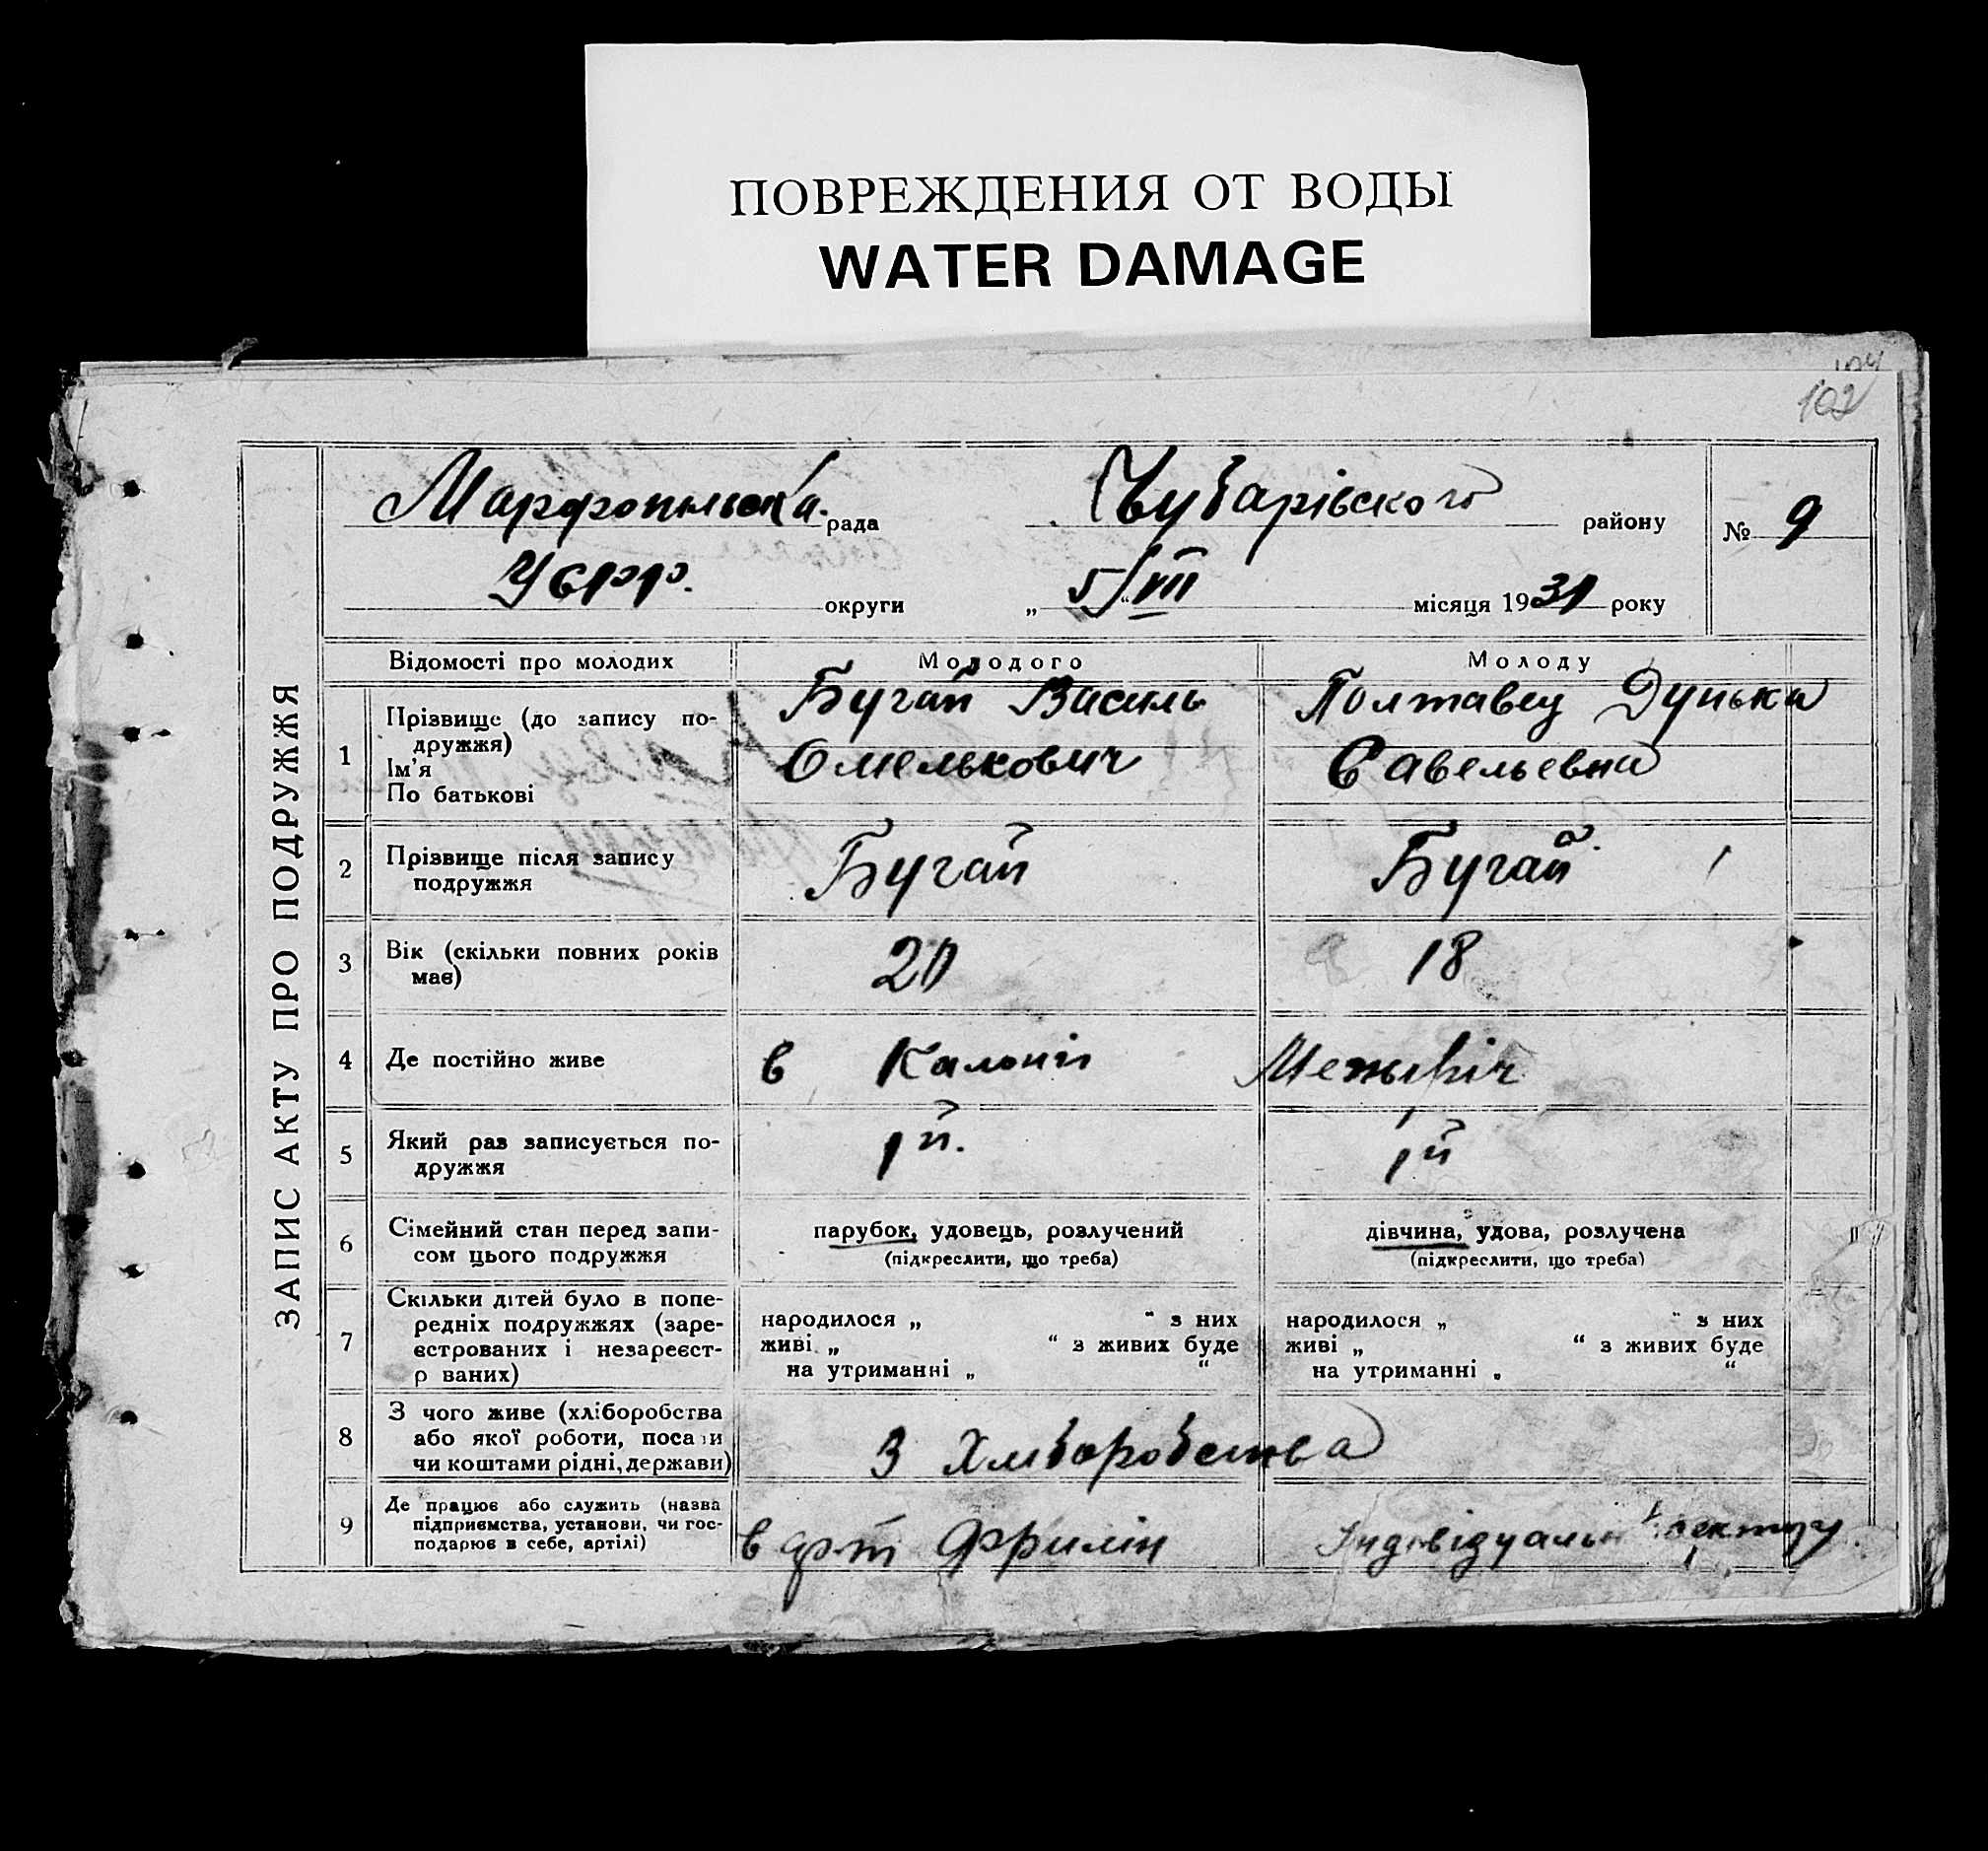 ПОВРЕЖДЕНИЯ ОТ ВОДЫ
WATER DAMAGE
102
ЗАПИС АКТУ ПРО ПОДРУЖЖЯ
Марфопільська рада Чубарівского району № 9
УСРР. округи „ 5/VIII “ місяця 1931 року
Відомості про молодих Молодого Молоду
1 Прізвище (до запису по-
дружжя)
Ім'я
По батькові
Бугай Василь
Омелькович
Полтавец Дунька
Савельевна
2 Прізвище після запису
подружжя
Бугай Бугай
3 Вік (скільки повних років
має)
20 18
4 Де постійно живе в Калоніі Межиріч
5 Який раз записується по-
дружжя
1й. 1й
6 Сімейний стан перед запи-
сом цього подружжя
парубок, удовець, розлучений
(підкреслити, що треба)
дівчина, удова, розлучена
(підкреслити, що треба)
7 Скільки дітей було в попе-
редніх подружжях (заре-
єстрованих і незареєст-
р ваних)
народилося „ “ з них
живі „ “ з живих буде
на утриманні „ “
народилося „ “ з них
живі „ “ з живих буде
на утриманні „ “
8 З чого живе (хліборобства
або якої роботи, поса и
чи коштами рідні, держави)
З Хліборобства
9 Де працює або служить (назва
підприємства, установи, чи гос-
подарює в себе, артілі)
в